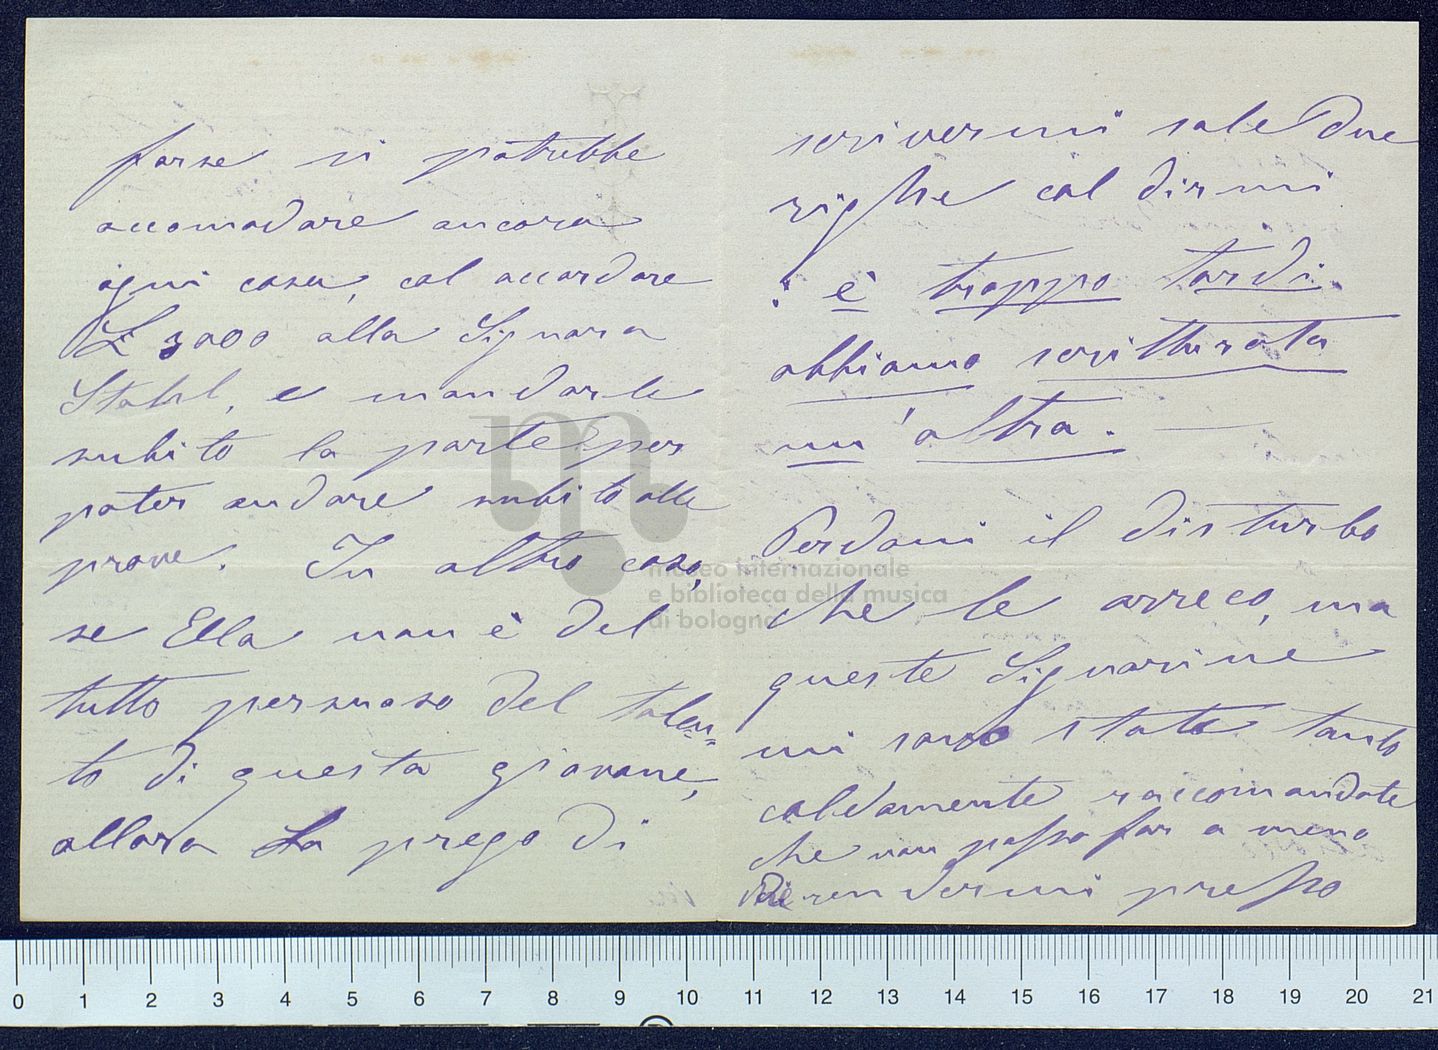 forse si potrebbe
accomodare ancora
ogni cosa, col accordare
£ 3000 alla Signora
Stahl, e mandarle
subito la parte per
poter andare subito alle
prove. In altro caso,
se Ella non è del
tutto persuaso del talen=
to di questa giovane,
allora La prego di
scrivermi sole due
righe col dirmi
: è troppo tardi.
abbiamo scritturata
un'altra. —
Perdoni il disturbo
che le arreco, ma
queste Signorine
mi sono state tanto
caldamente raccomandate
che non posso far a meno
di rendermi presso
museo internazionale
e biblioteca della musica
di bologna
0 1 2 3 4 5 6 7 8 9 10 11 12 13 14 15 16 17 18 19 20 21